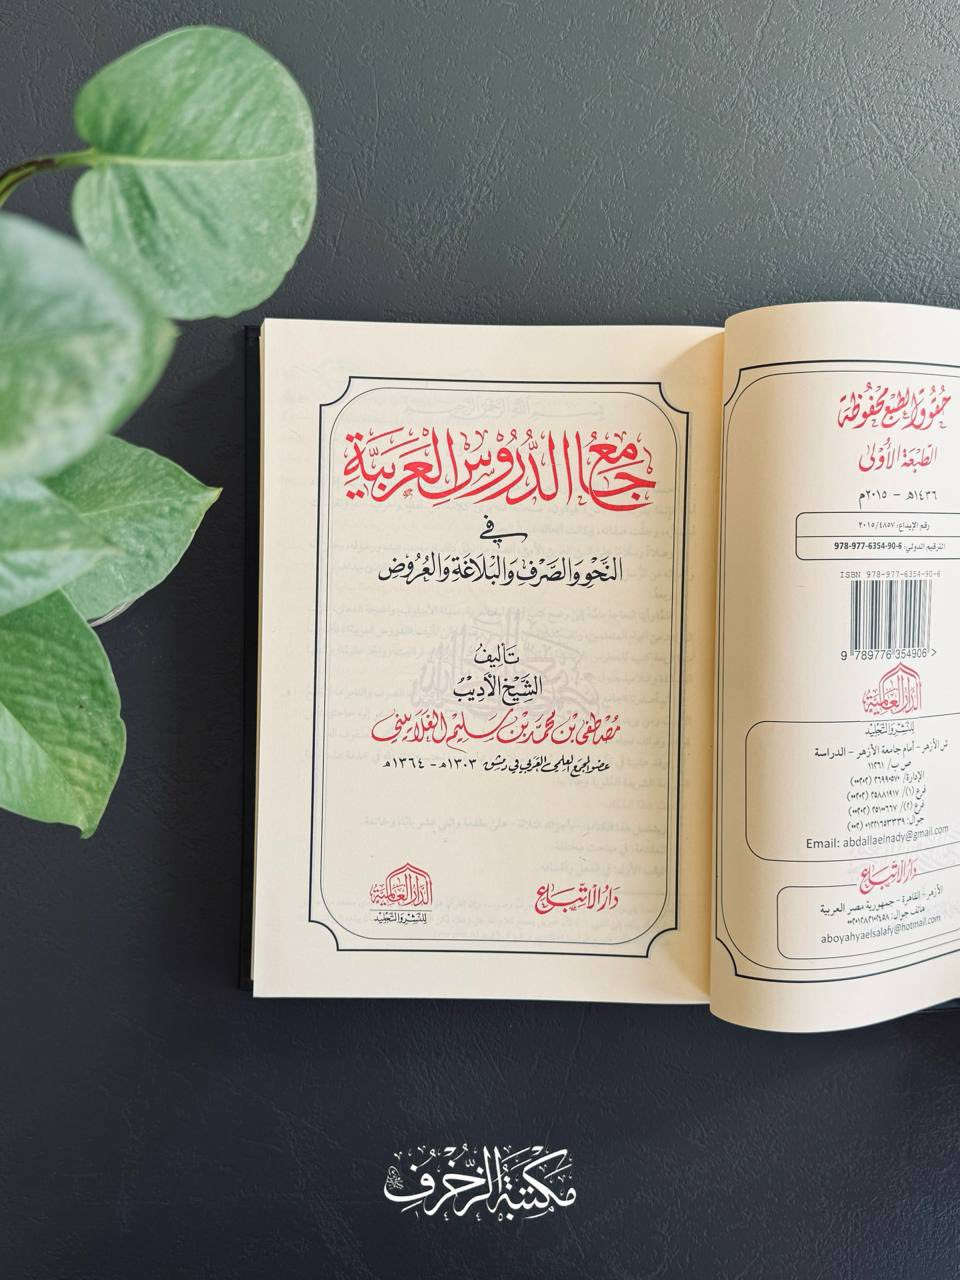 جَامِعُ الدُّرُوسِ العَرَبِيَّةِ
في
النَّحْوِ وَالصَّرْفِ وَالبَلَاغَةِ وَالعُرُوضِ
تَأْلِيفُ
الشَّيْخِ الأَدِيبِ
مُصْطَفَى بْنِ مُحَمَّد بْنِ سَلِيمِ الغَلَايِينِي
عضو المجمع العلمي العربي في دمشق ١٣٠٣هـ - ١٣٦٤هـ
دَارُ الاتِّبَاعِ
الدَّارُ العَالَمِيَّة
لِلنَّشْرِ وَالتَّجْلِيدِ
حُقُوقُ الطَّبْعِ مَحْفُوظَة
الطَّبْعَةُ الأُولَى
١٤٣٦هـ - ٢٠١٥م
رقم الإيداع: ٢٠١٥/٤٨٥٧
الترقيم الدولي: 978-977-6354-90-6
ISBN 978-977-6354-90-6
9 789776 354906 >
الدَّارُ العَالَمِيَّة
لِلنَّشْرِ وَالتَّجْلِيدِ
ش الأزهر - أمام جامعة الأزهر - الدراسة
ص ب/ ١١٣٦١
الإدارة/
فرع (١)/
فرع (٢)/
جوال:
Email: abdallaelnady@gmail.com
دَارُ الاتِّبَاعِ
الأزهر - القاهرة - جمهورية مصر العربية
هاتف جوال:
aboyahyaelsalafy@hotmail.com
مَكْتَبَةُ الزُّخْرُف